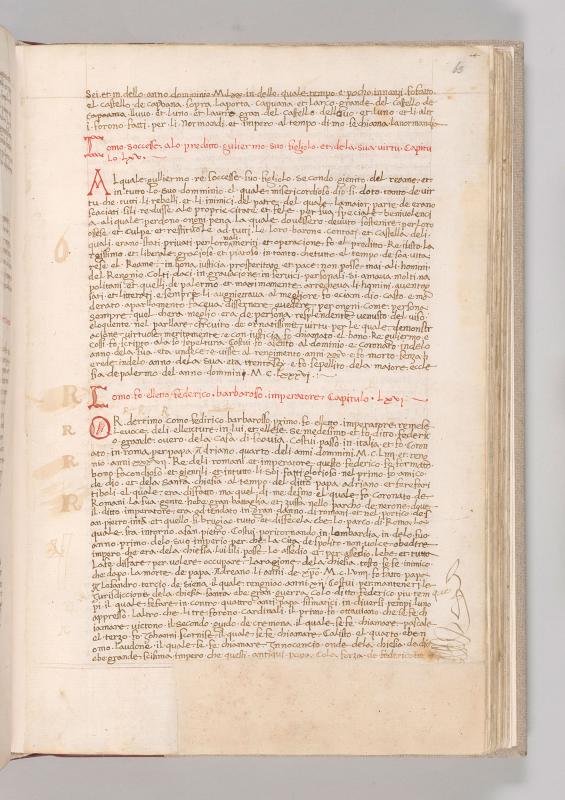 65
Sei et in dello anno dominio M Lxx in dello quale tempo e pocho innanti fo fatto
el castello de capoana sopra la porta capuana et larco grande del castello de
capoana lluvo et luno et lautro gran del castello dellovo et luno et li altr
i forono fatti per li Normandi et impero al tempo di mo se chiana lanormando
Como soccesse alo preditto gulliermo suo figliolo et dela sua virtu Capitu
lo LXV
AL quale gulliermo re soccesse suo figliolo secondo genito del reame et
in tutto lo suo domminio el quale misericordioso dio si doto tanto de vir
tu che tutti li rebelli et li inimici del patre del quale la maior parte de erano
scaciati si li redusse ale proprie citate et felle per sua speciale benivolenci
a ali quale perdono ongni pena la quale dovessero devuto sostenere per loro
offese et culpa et restituole ad tutti le loro barone contati et castella deli
quali erano stati privati per loro mali et operacione fo el preditto Re iusto La
rgissimo et liberale gracioso et piatoso in tanto che tutto el tempo de soa vita
resse el Reame in bona iusticia prosperitate et pace non posse mai ali homini
del Rengnio Colti daci in gravacione in servici personali si amava molti na
politani et quelli de palermo et maximamente arrecheva li homini aventuro
sati et litterati e sempre li augmentava al megliore fo eciam dio casto e mo
derato aparlamento faceva dissennere guedere per ongni come persona
sempre quel chera meglio era de persona resplendente venusto del viso
eloquente nel parllare circuito de ornatissime virtu per le quale demonstr
acione virtuose meritamente e con iusticia fo chiamato el bono Re gulliermo e
cossi fo scritto ala lo sepoltura Costui fo asonto al dominio e Coronato indelo
anno dela sua eta undece re visse al rengimento anni xxv e fo morto senza p
erede indelo anno dela sua eta trenta sex et fo sepellito dela maiore eccle
sia de palermo del anno dommini M.C.Lxxxvi
Como fo elletto federico barbarosso imperatore Capitulo LXVI
OR derrimo como fedirico barbarosso primo fo elletto imperatore recepesse
La voce deli ellecture in lui et ellesse se medesimo et fo ditto federic
o grande overo dela casa di soavia Costui passo in italia et fo Coron
ato in roma per papa Adriano quarto deli anni dommini M.C.Liiii et reng
nio anni xxxvii Re deli romani et imperatore questo federico fo formatto
bono facondioso et gientili et in tutti li soi fatti glorioso nel primo fo amico
de dio et dela santa chiesia al tempo del ditto papa adriano et fere far i
tiboli el quale era disfatto ma quel di medesimo el quale fo coronato de
Romani la sua gente hebe gran battaglia et zuffa nello parcho de nerone dove
il ditto imperatore era ad tendato in gran danno di romani et nel portico de s
an pietro infra et quello si brugiao tutto et disfece la che lo parco di Roma la
quale sta intorno a san pietro Costui portornando in lombardia in delo suo
anno primo delo suo imperio per che la Cita despolite non volce obedire
impero che era dela chiesia lui li posse Lo assedio et per assedio lebe et tutto
La fe disfare per volere occupare La rasione dela chiesia tosto se fe inimico
che dapo la morte de papa Adreano li anni de xpo M.C.Lviiii fo fatto papa
Alesandro tercio de siena il quale rengnioo anni xxi Costui per mantener le
Iurisdictione dela chiesia santa ebe gran guerra colo ditto federico piu tem
pi il quale fe fare in contro quattro anti papa sismatici in diversi tempi luno
appresso laltro che li tre foreno Cardinali il primo fo ottaviano che se fe ch
iamare victorio il secondo guido de cremona il quale se fe chiamare pascale
el terzo fo Iohanni scormise il quale se fe chiamare Calisto el quarto ebe n
ome landone il quale se fe chiamare Innocencio onde dela chiesia de dio
ebe grande scisma impero che quelli antiqui papa cola forza de federico te